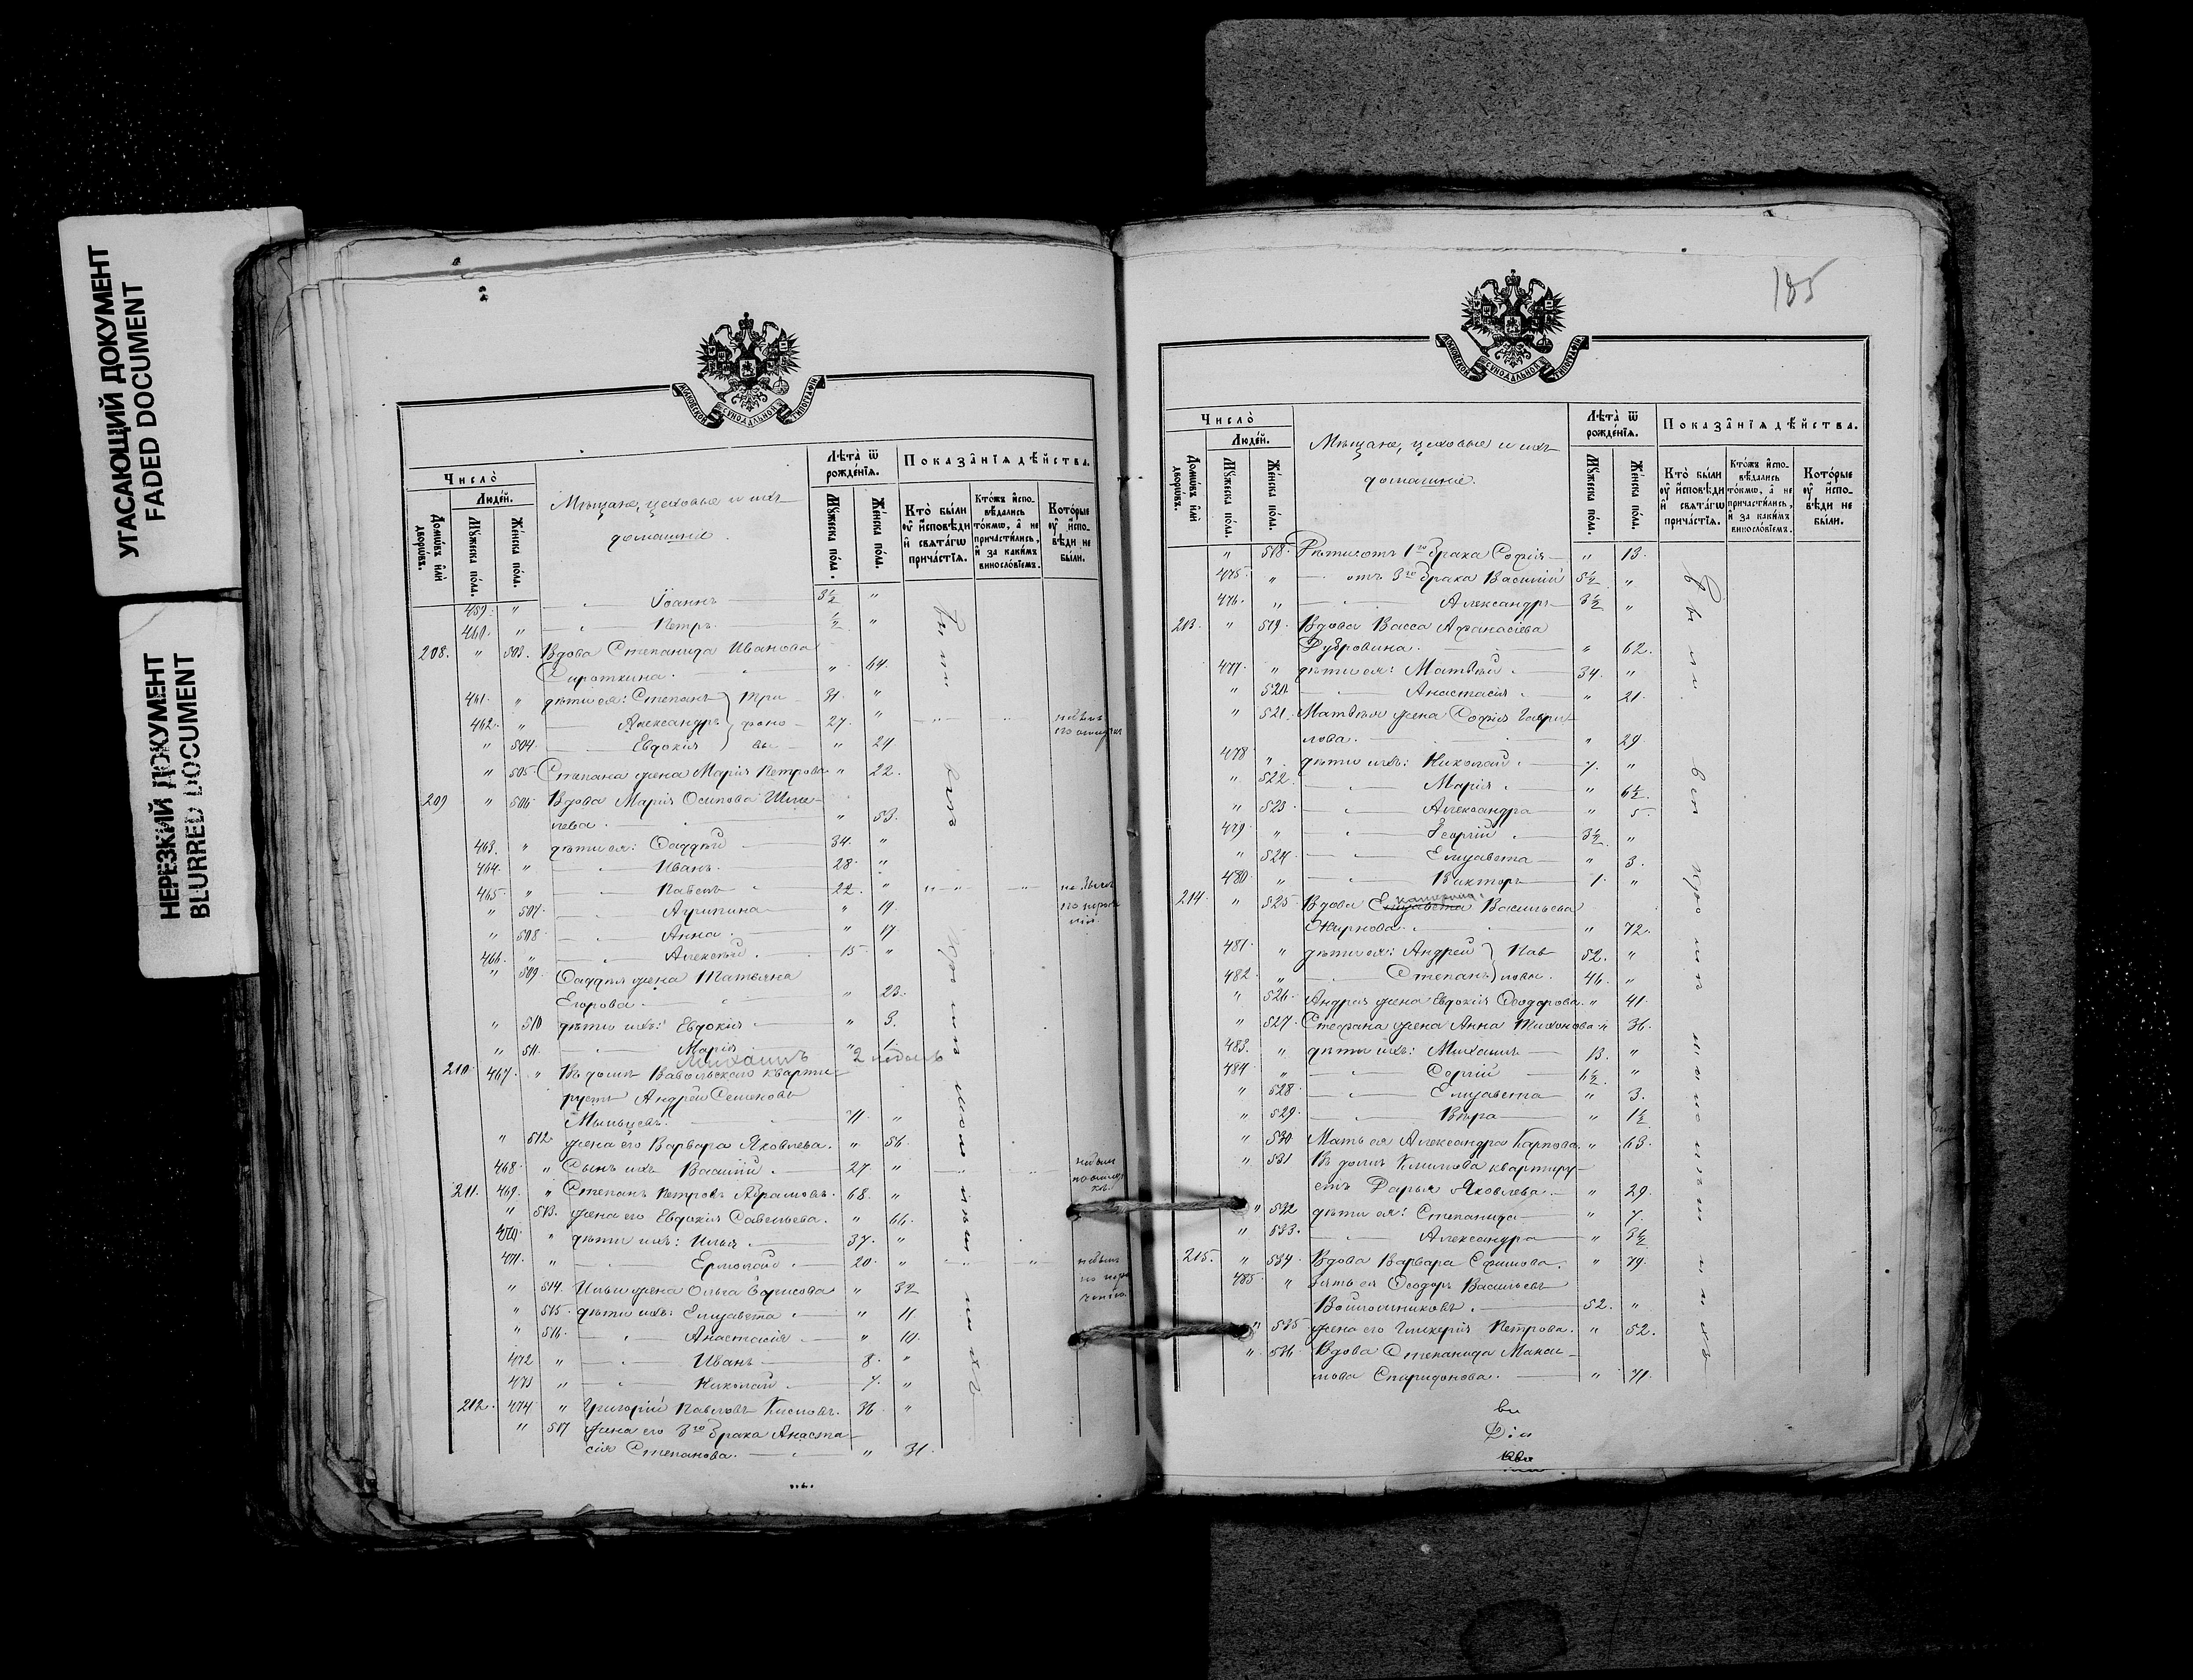 УГАСАЮЩИЙ ДОКУМЕНТ
FADED DOCUMENT
НЕРЕЗКИЙ ДОКУМЕНТ
BLURRED DOCUMENT
МОСКОВСКОЙ СУНОДАЛЬНОЙ ТИПОГРАФІИ
Число̀
Людей.
Домѡвъ или дворѡвъ.
Мꙋжеска пола.
Женска пола.
Мѣщане, цеховые и ихъ
домашніе.
Лѣта̀ ѿ рождéнїѧ.
Мꙋжеска пола.
Женска пола.
Показа̂нїѧ дѣ́йства.
Кто̀ были ᲂу҆ и҆сповѣди и҆ свѧта́гѡ прича́стїѧ.
Кто́жъ и҆спо-вѣдались то́кмѡ, а҆ не причасти́лись, и҆ за каки́мъ винослóвїемъ.
Кото́рые ᲂу҆ и҆спо-вѣди не бы́ли.
459. " — " — Іоаннъ 3½ "
460. " — " — Петръ ½ "
208. " 503. Вдова Степанида Иванова
Сироткина. " 64.
461. " дѣти ея: Степанъ Три- 31. "
462. " Александръ фоно- 27. "
" 504. Евдокія вы " 24
" 505 Степана жена Марія Петрова " 22.
209 " 506 Вдова Марія Осипова Шме-
лева. " 53.
463. " дѣти ея: Ѳаддѣй 34. "
464. " Иванъ. 28. "
465. " Павелъ 22. "
" 507. Агрипина " 19.
" 508. Анна. " 17.
466. " Алексѣй. 15 "
" 509. Ѳаддѣя жена Татьяна
Егорова. " 23.
" 510 дѣти ихъ: Евдокія " 3.
" 511. Марія " 1.
Михаилъ 2 недель
210. 467. " Въ домѣ Вавольскаго кварти-
руетъ Андрей Семеновъ
Мыльцевъ. 71. "
" 512. жена его Варвара Яковлева. " 56.
468. " Сынъ ихъ Василій. 27. "
211. 469. " Степанъ Петровъ Абрамовъ. 68. "
" 513. жена его Евдокія Савельева. " 66.
470. " дѣти ихъ: Илья 37. "
471. " Ермолай 20. "
" 514. Ильи жена Ольга Борисова " 32
" 515. дѣти ихъ: Елизавета " 11.
" 516. Анастасія " 10.
472 " Иванъ 8. "
473 " Николай 7. "
212. 474 " Григорій Павловъ Кисловъ. 36. "
" 517 жена его 3го брака Анаста-
сія Степанова. " 31.
185
МОСКОВСКОЙ СУНОДАЛЬНОЙ ТИПОГРАФІИ
Число̀
Людей.
Домѡвъ или дворѡвъ.
Мꙋжеска пола.
Женска пола.
Мѣщане, цеховые и ихъ
домашніе.
Лѣта̀ ѿ рождéнїѧ.
Мꙋжеска пола.
Женска пола.
Показа̂нїѧ дѣ́йства.
Кто̀ были ᲂу҆ и҆сповѣди и҆ свѧта́гѡ прича́стїѧ.
Кто́жъ и҆спо-вѣдались то́кмѡ, а҆ не причасти́лись, и҆ за каки́мъ винослóвїемъ.
Кото́рые ᲂу҆ и҆спо-вѣди не бы́ли.
" 518. Дѣти отъ 1го брака Софія " 13.
475. " отъ 3го брака Василій 5½ "
476. " Александръ 3½ "
213. " 519. Вдова Васса Аѳанасіева
Дубровина. " 62.
477. " дѣти ея: Матвѣй 34. "
" 520. Анастасія " 21.
" 521. Матвѣя жена Софія Гаври-
лова. " 29.
478 " дѣти ихъ: Николай 7. "
" 522. Марія " 6½.
" 523. Александра " 5.
479. " Георгій 3½ "
" 524. Елизавета " 3.
480. " Викторъ 1. "
214. " 525. Вдова Елизавета Васильева
Жирнова. " 72.
481. " дѣти ея: Андрей Пав- 52. "
482. " Степанъ ловы. 46. "
" 526. Андрея жена Евдокія Ѳеодорова. " 41.
" 527. Стефана жена Анна Тихонова " 36.
483. " дѣти ихъ: Михаилъ 13. "
484. " Сергій 6½. "
" 528. Елизавета " 3.
" 529. Вѣра " 1½
" 530 Мать ея Александра Карпова. " 63.
" 531 Въ домѣ Климова квартиру-
етъ Дарья Яковлева. " 29.
" 532 дѣти ея: Степанида " 7.
" 533. Александра " 5½
215. " 534. Вдова Варвара Ефимова. " 79.
485. " Зять ея Ѳеодоръ Васильевъ
Войлошниковъ. 52. "
" 535. жена его Гликерія Петрова. " 52.
" 536. Вдова Степанида Макси-
мова Спиридонова. " 71.